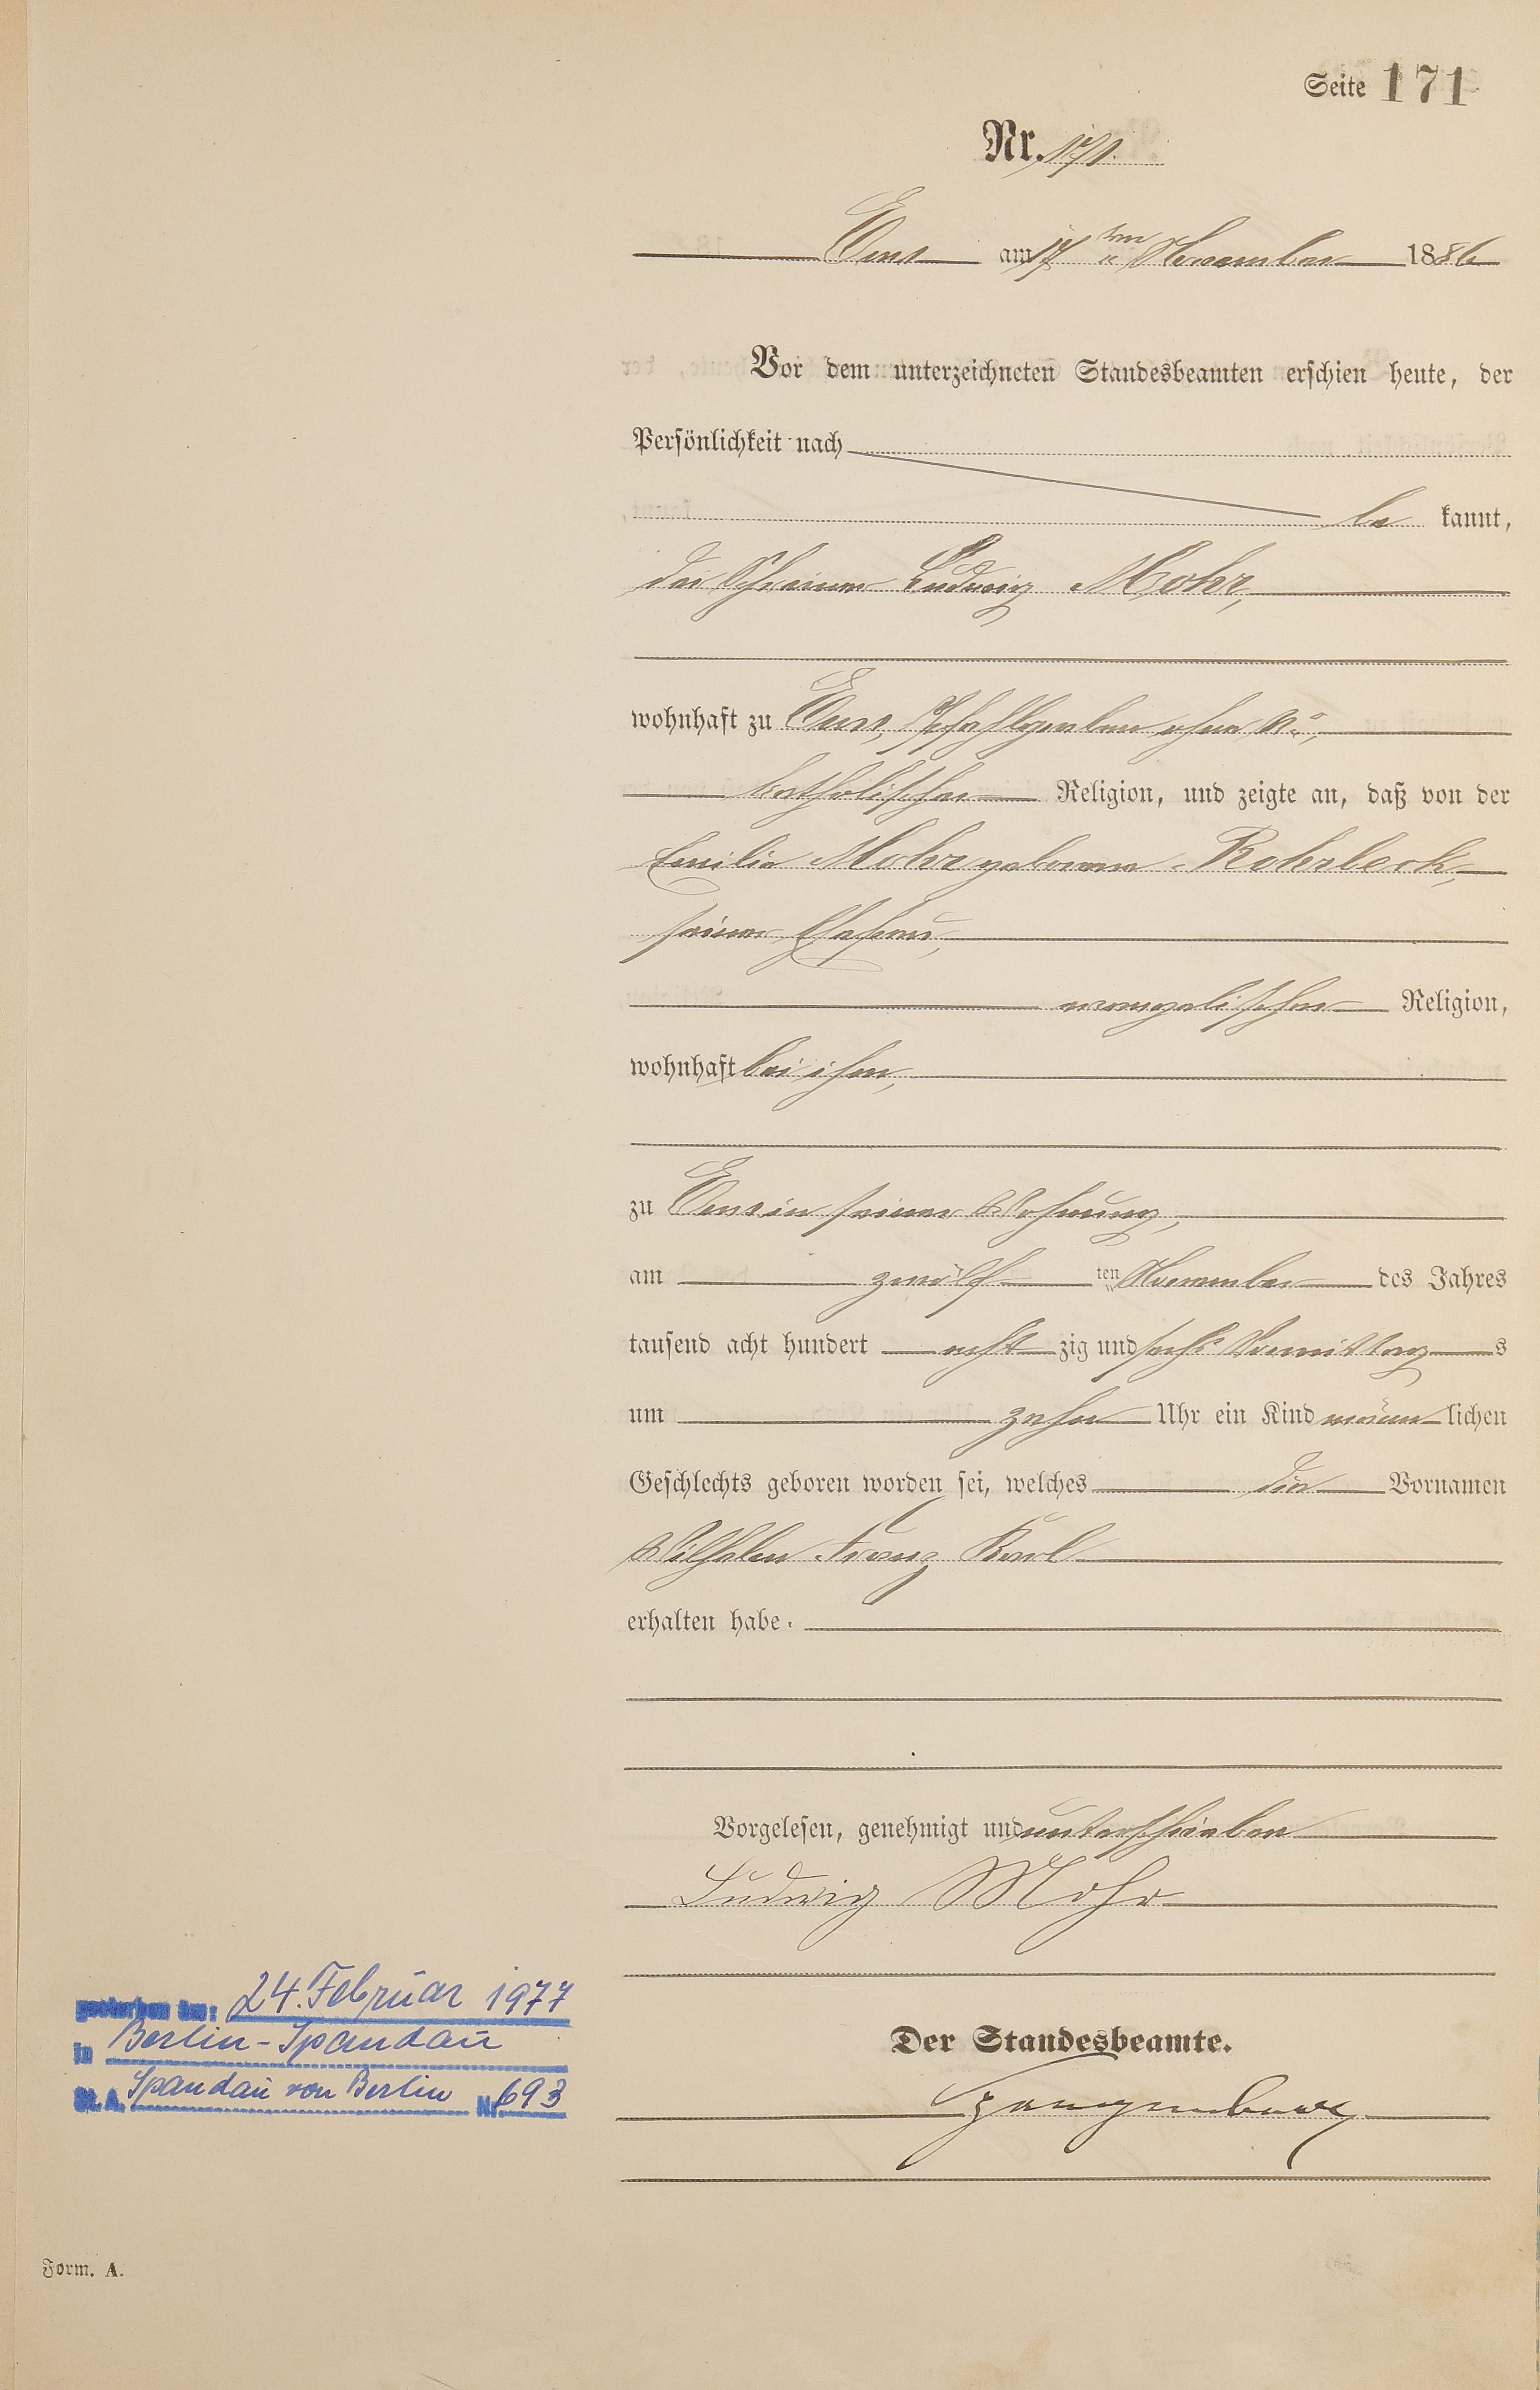 Seite 171
Nr. 171.
Ems am 17 ten November 1886
Vor dem unterzeichneten Standesbeamten erschien heute, der
Persönlichkeit nach
be kannt,
der Schreiner Ludwig Mohr,
wohnhaft zu Ems, Pfahlgraben ohne No,
katholischer Religion, und zeigte an, daß von der
Emilie Mohr geborene Rohrbeck,
seiner Ehefrau,
evangelischer Religion,
wohnhaft bei ihm,
zu Ems in seiner Wohnung,
am zwölf ten November des Jahres
tausend acht hundert acht zig und sechs Vormittag s
um zehn Uhr ein Kind männ lichen
Geschlechts geboren worden sei, welches die Vornamen
Wilhelm Franz Karl
erhalten habe.
Vorgelesen, genehmigt und unterschrieben
Ludwig Mohr
gestorben am: 24. Februar 1977
in Berlin-Spandau
Der Standesbeamte.
St. A. Spandau von Berlin Nr. 693
Form. A.